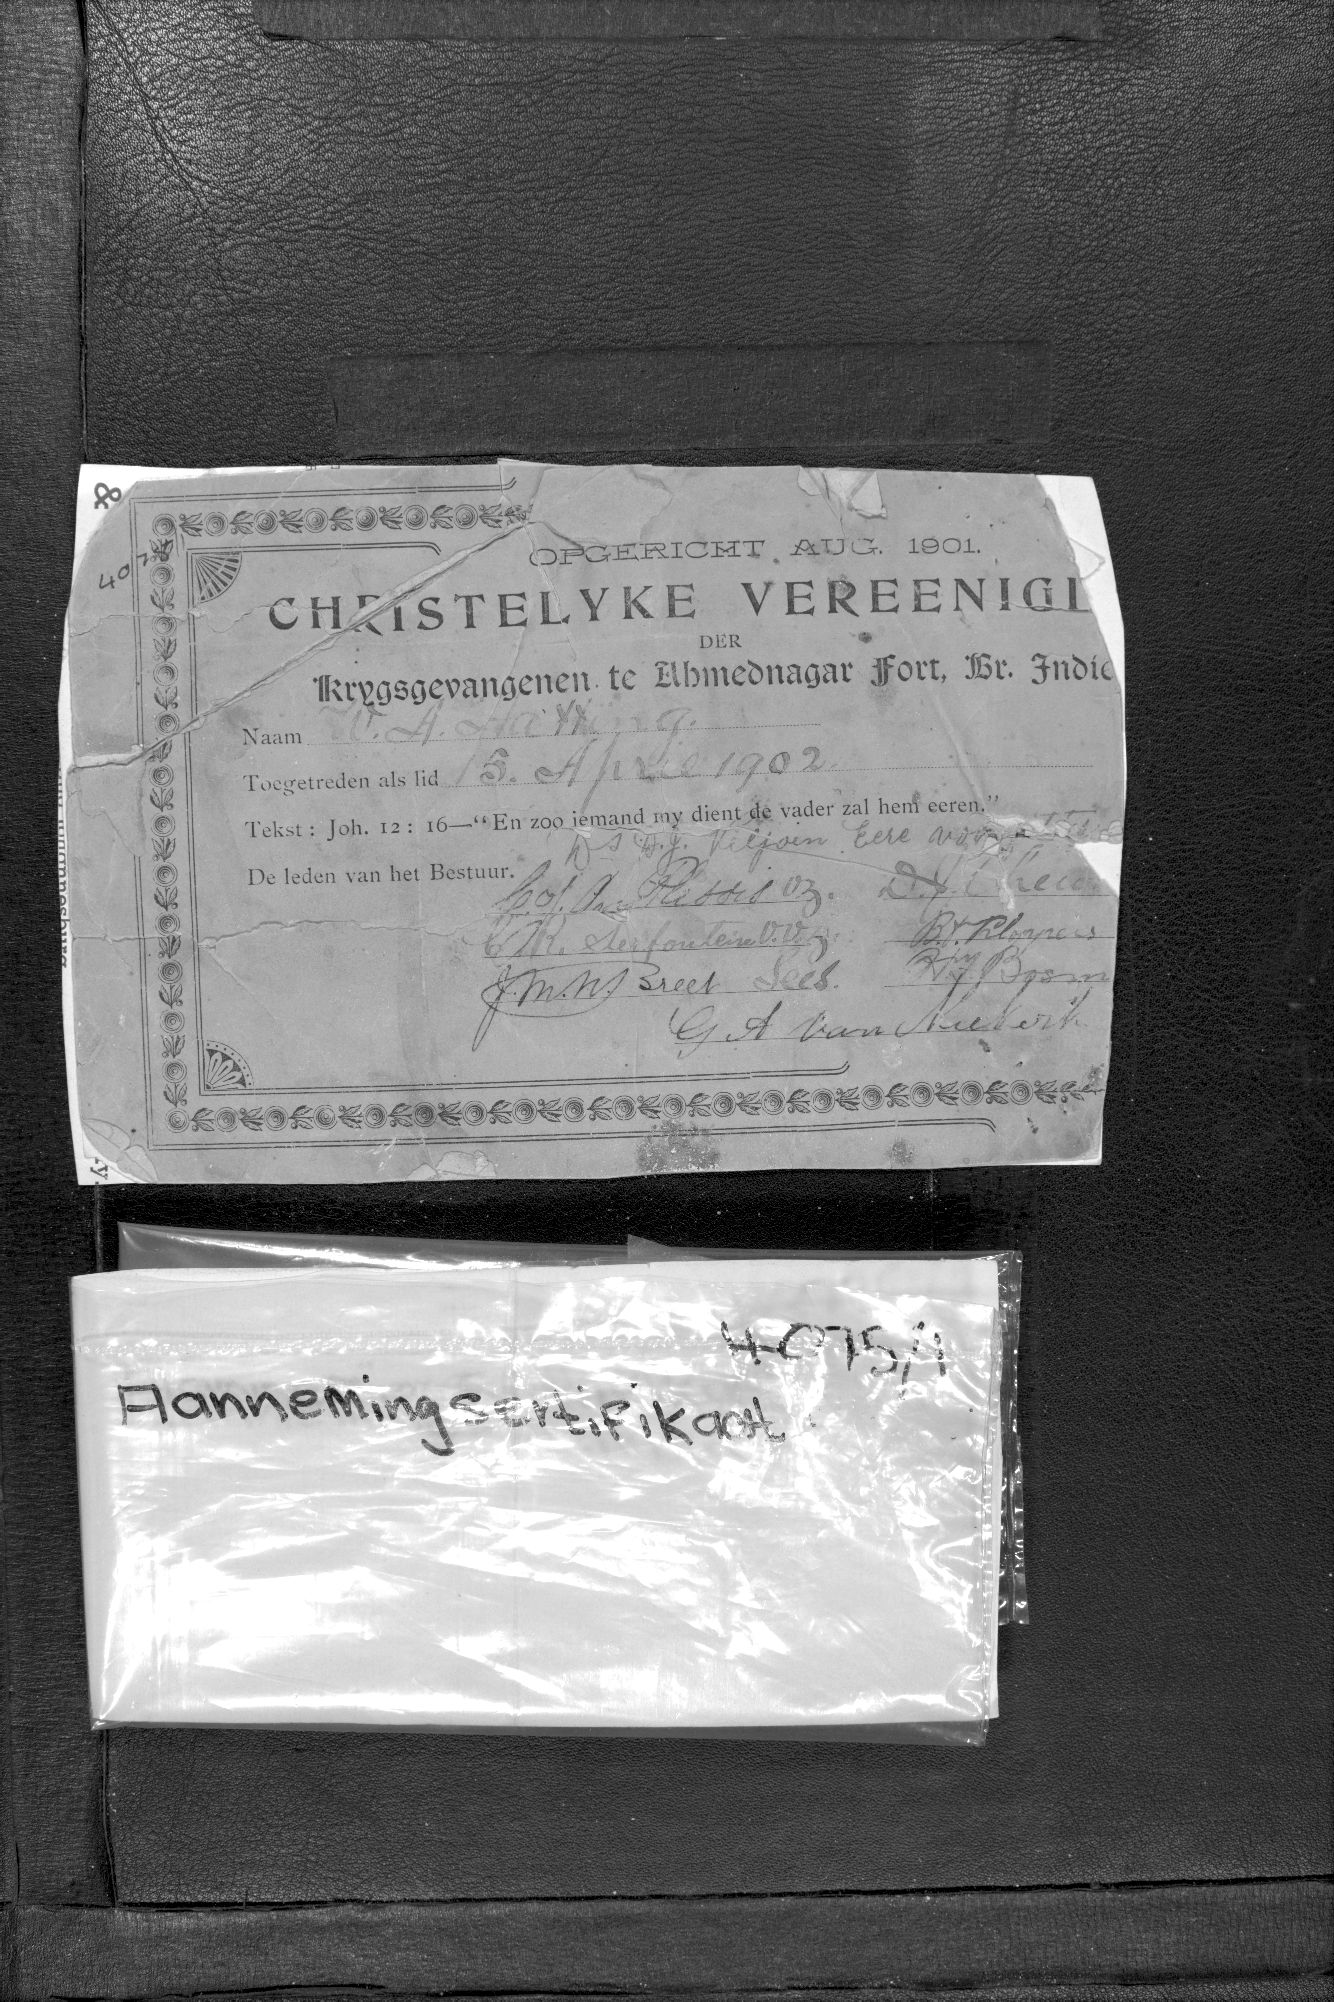 &
OPGERICHT AUG. 1901.
CHRISTELYKE VEREENIGI
DER
Krygsgevangenen te Ahmednagar Fort, Br. Indie
Naam W. A. Hatting.
Toegetreden als lid 13. April 1902.
Tekst: Joh. 12: 16—“En zoo iemand my dient de vader zal hem eeren.”
Ds D. J. Viljoen Eere
De leden van het Bestuur.
du Plessis Vz. D. J.
Serfontein V.Vz.
J. M. N. Breet Secs.
G A van Niekerk
4075/1
Aannemingsertifikaat